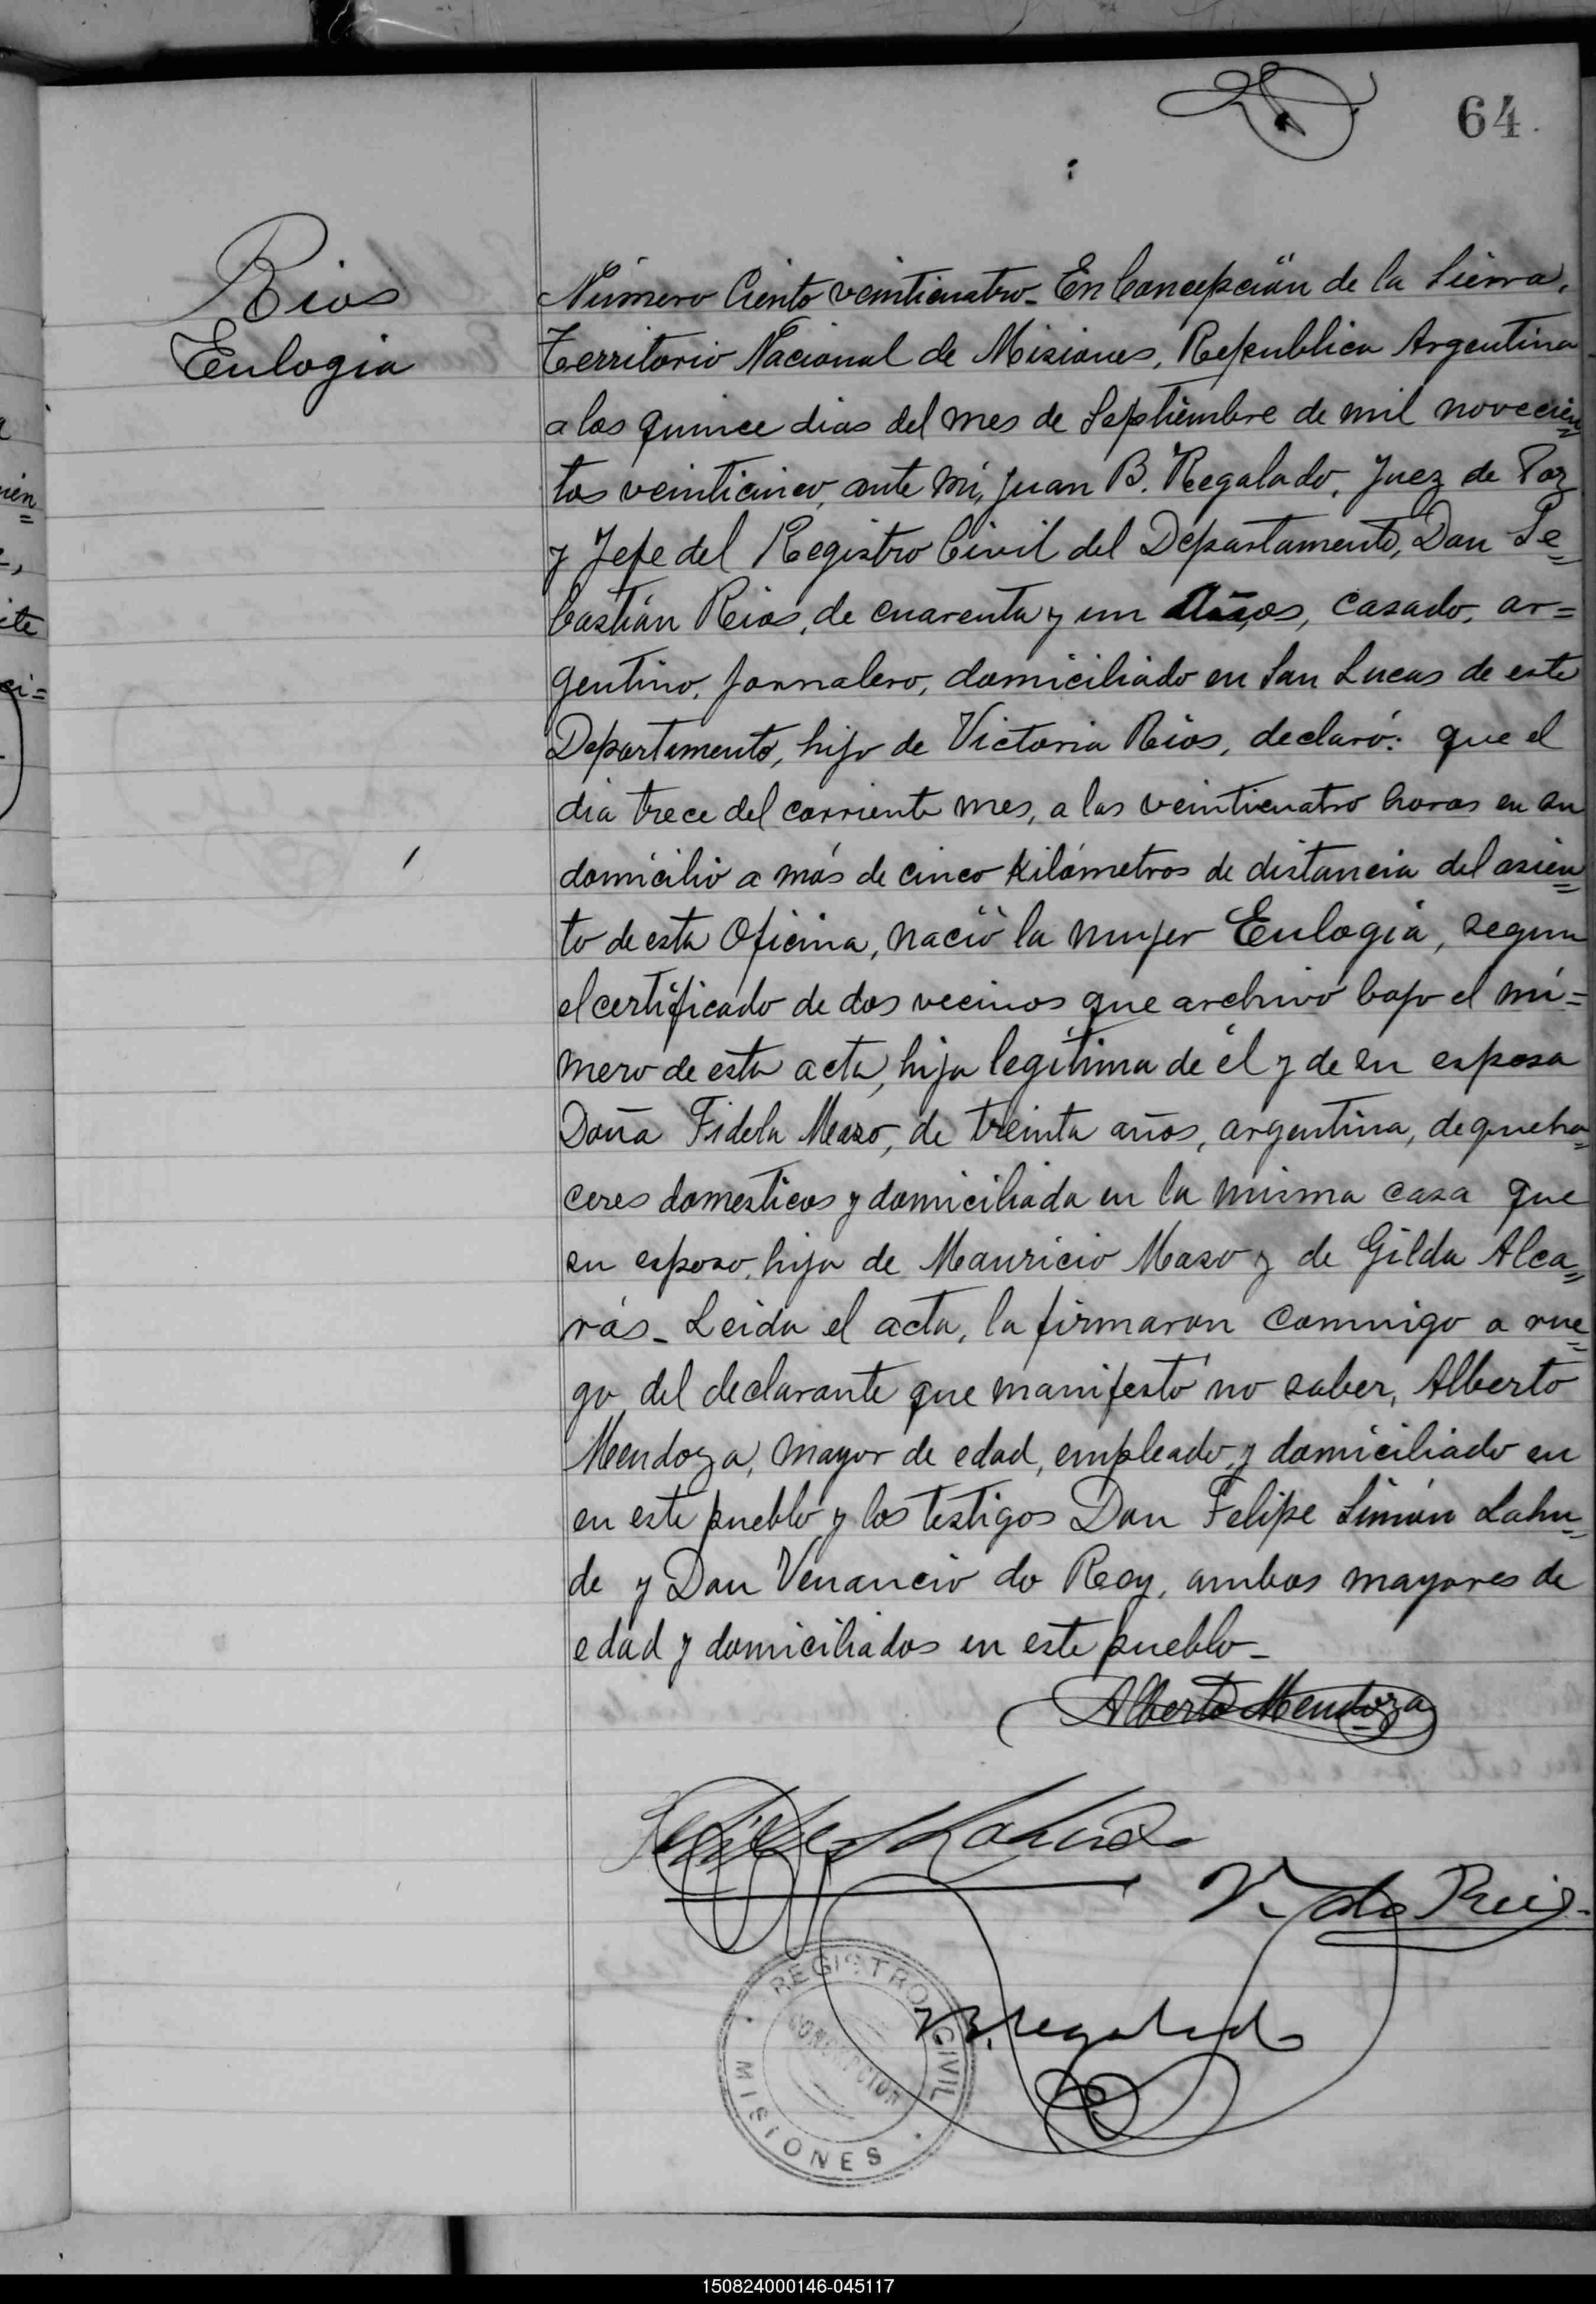 64.
Rios
Eulogia
Número Ciento veinticuatro_ En Concepción de la Sierra,
Territorio Nacional de Misiones, Republica Argentina
a los quince dias del mes de Septiembre de mil novecien=
tos veinticinco, ante mí, Juan B. Regalado, Juez de Paz
y Jefe del Registro Civil del Departamento, Don Se=
bastián Rios, de cuarenta y un años, casado, ar=
gentino, jornalero, domiciliado en San Lucas de este
Departamento, hijo de Victoria Rios, declaró: que el
dia trece del corriente mes, a las veinticuatro horas en su
domicilio a más de cinco kilómetros de distancia del asien=
to de esta Oficina, nació la mujer Eulogia, segun
el certificado de dos vecinos que archivo bajo el nú=
mero de esta acta, hija legítima de él y de su esposa
Doña Fidela Maso, de treinta años, argentina, de queha=
ceres domesticos y domiciliada en la misma casa que
su esposo, hija de Mauricio Maso y de Gilda Alca=
rás_ Leida el acta, la firmaron conmigo a rue=
go del declarante que manifestó no saber, Alberto
Mendoza, mayor de edad, empleado y domiciliado en
en este pueblo y los testigos Don Felipe Simón Lahu=
de y Don Venancio do Rey, ambos mayores de
edad y domiciliados en este pueblo_
Alberto Mendoza
Felipe S Lahude
V. do Rei
B. Regalado
REGISTRO CIVIL
CONCEPCION
MISIONES
150824000146-045117